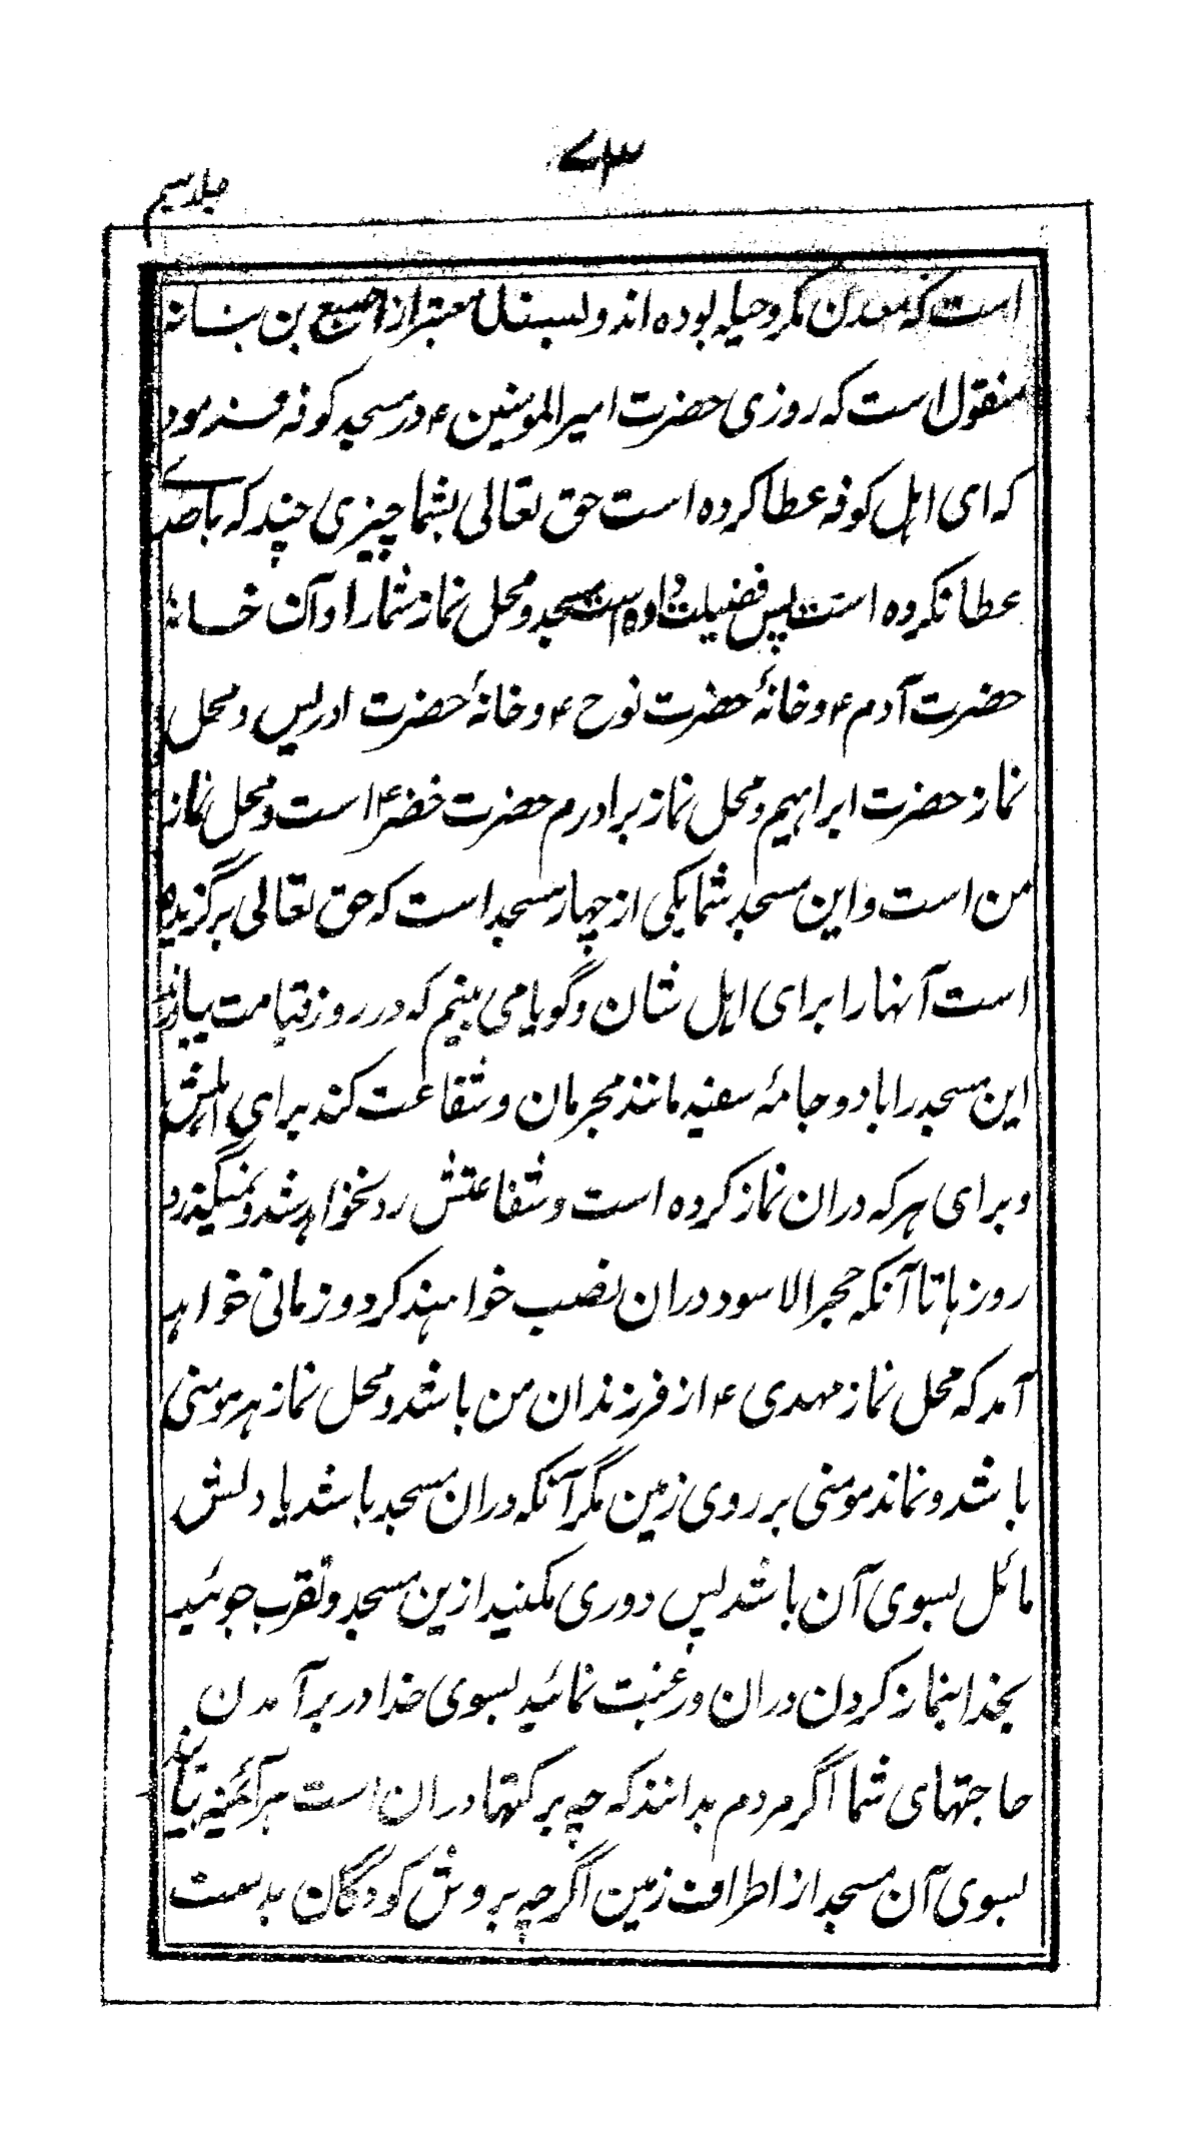 ۷۳
جلد سیم
است که معدن مکر و حیله بوده اند و بسند معتبر از اصبغ بن نباته
منقول است که روزی حضرت امیرالمومنین ۴ در مسجد کوفه فرمود
که ای اهل کوفه عطا کرده است حق تعالی بشما چیزی چند که باحدے
عطا نکرده است پس فضیلت داده است مسجد و محل نماز شما را و آن خانۀ
حضرت آدم ۴ و خانۀ حضرت نوح ۴ و خانۀ حضرت ادریس و محل
نماز حضرت ابراهیم و محل نماز برادرم حضرت خضر ۴ است و محل نماز
من است و این مسجد شما یکی از چهار مسجد است که حق تعالی برگزیده
است آنها را برای اهل شان و گویا می بینم که در روز قیامت بیاورند
این مسجد را با دو جامۀ سفید مانند محرمان و شفاعت کند برای اهلش
و برای هر که دران نماز کرده است و شفاعتش رد نخواهد شد و نمیگذرد
روزها تا آنکه حجر الاسود دران نصب خواهند کرد و زمانی خواهد
آمد که محل نماز مهدی ۴ از فرزندان من باشد و محل نماز هر مومنی
باشد و نماند مومنی بر روی زمین مگر آنکه دران مسجد باشد یا دلش
مائل بسوی آن باشد پس دوری مکنید ازین مسجد و تقرب جوئید
بخدا بنماز کردن دران و رغبت نمائید بسوی خدا در بر آمدن
حاجتهای شما اگر مردم بدانند که چه برکتها دران است هر آئینه بیایند
بسوی آن مسجد از اطراف زمین اگر چه بروش کودکان بدست